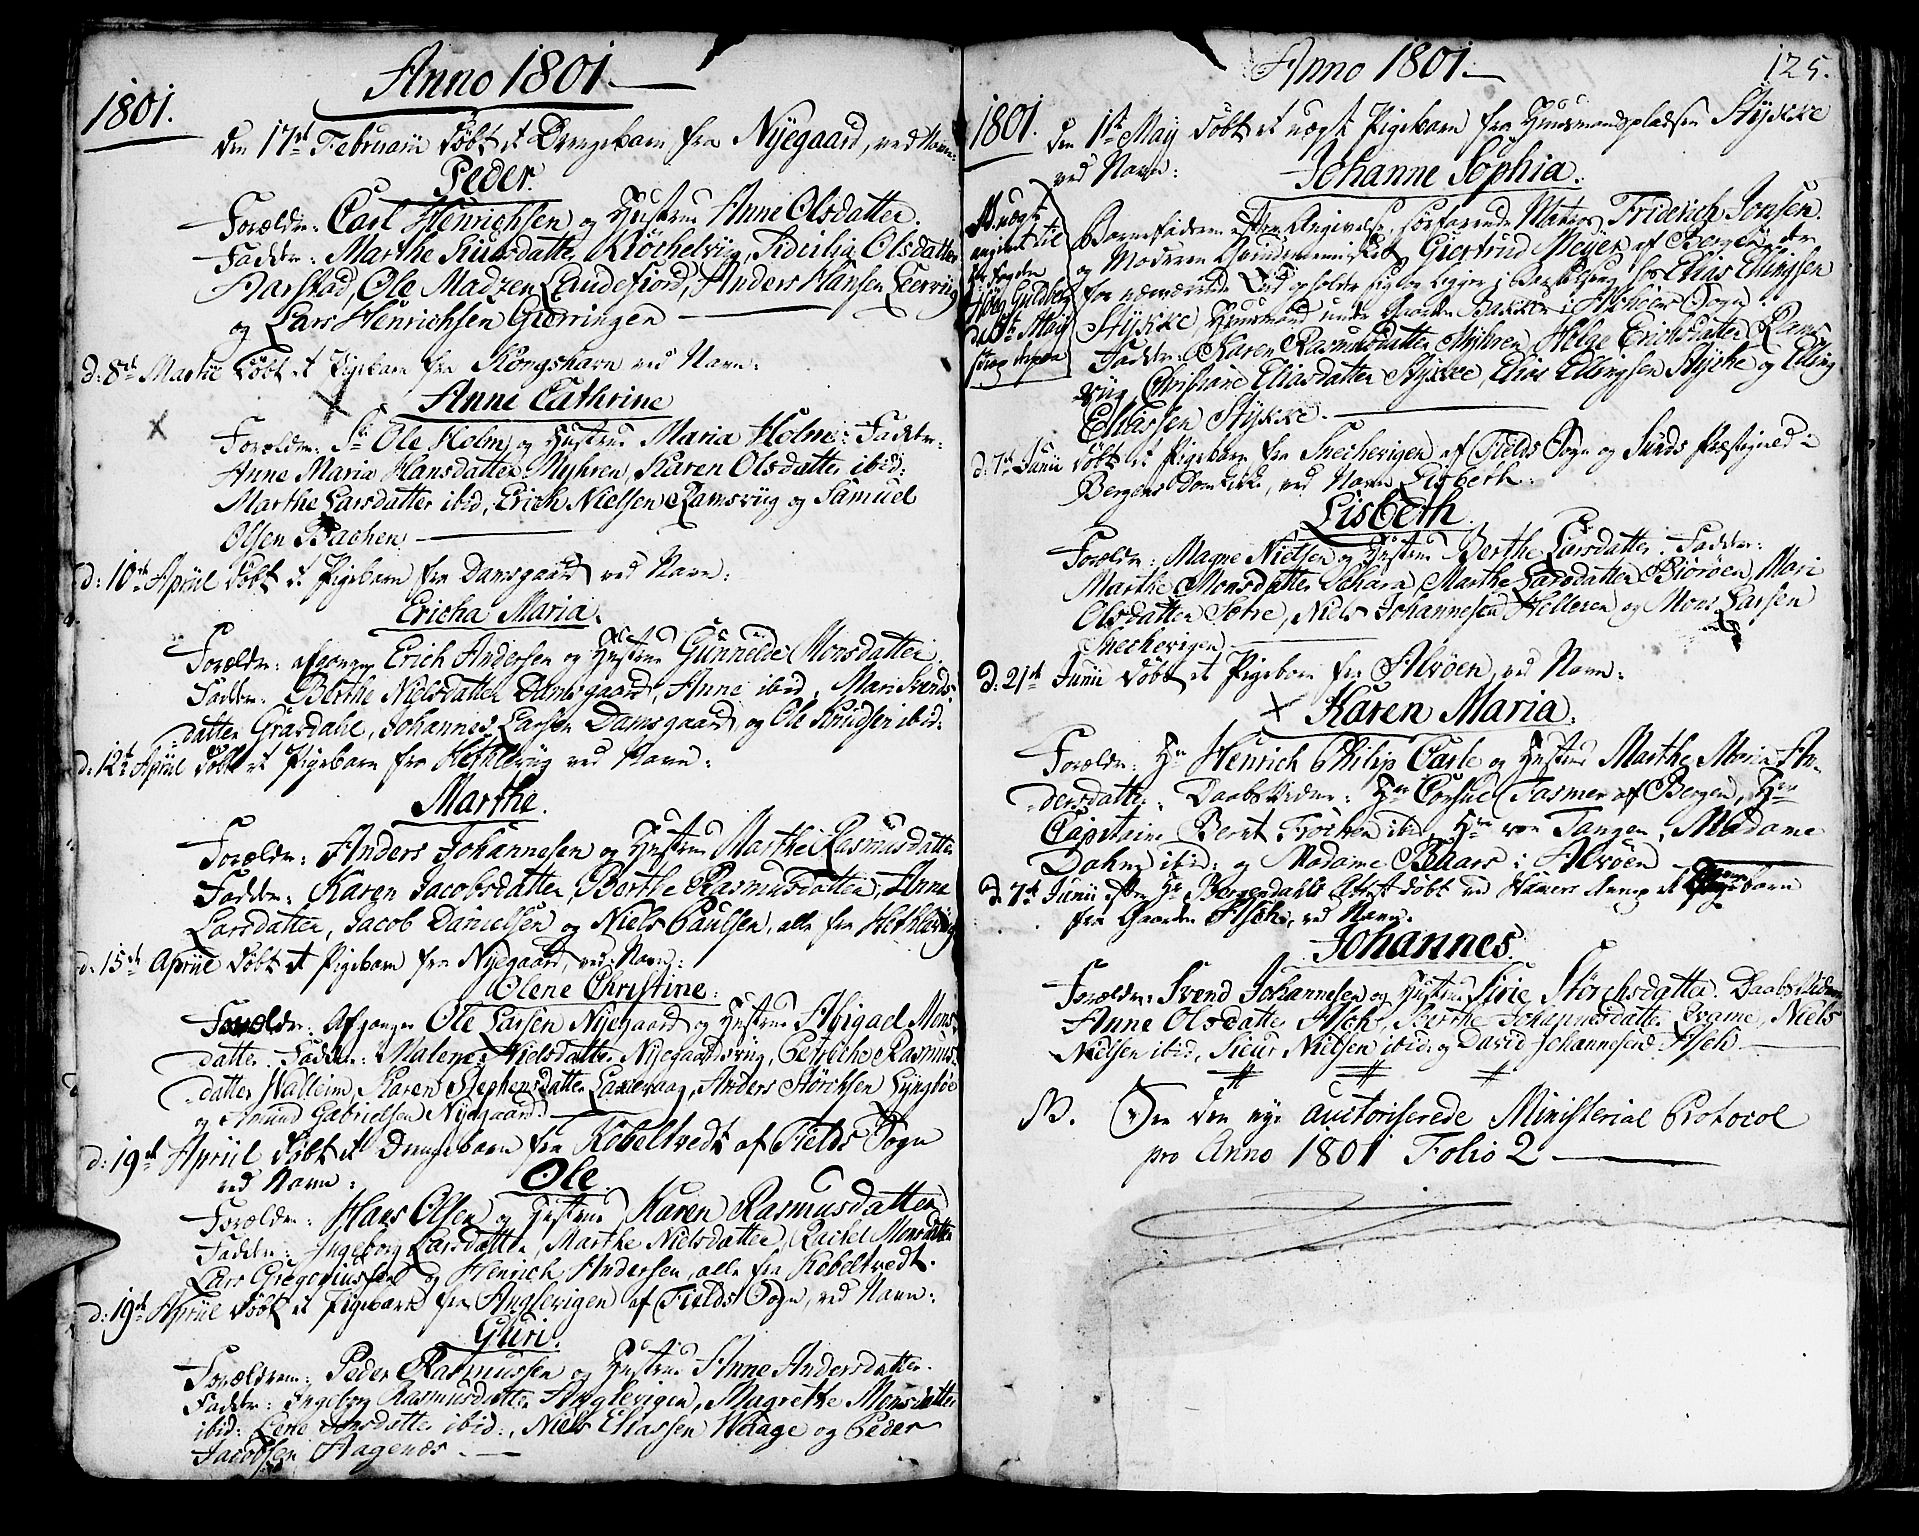 Anno 1801.
1801.
den 17de Februarii døbt et Drengebarn fra Nyegaard, ved Navn:
Peder.
Forældre: Carl Henrichsen og Hustrue Anne Olsdatter.
Faddere: Marthe Siursdatter Kiöchelviig, Sidcilia Olsdatter
Aarstad, Ole Madzen Laudefiord, Anders Hansen Leervüg
og Lars Henrichsen Gierringen
d: 8de Martii døbt et Pigebarn fra Kongshavn ved Navn:
Anne Cathrine
Forældre: Sr Ole Holm og Hustrue Maria Holm: Faddere:
Anne Maria Hansdatter Myhren, Karen Olsdatter ibid:
Marthe Larsdatter ibid, Erich Nielsen Ramsviig og Samuel
Olsen Bachen
d: 10de Apriil døbt et Pigebarn fra Damsgaard ved Navn:
Ericha Maria.
Forældre: afgangne Erich Andersen og Hustrue Gunnelde Monsdatter.
Faddere: Berthe Nielsdatter Damsgaard, Anne ibid, Mari Svends
datter Grasdahl, Johannes Larsen Damsgaard og Ole Knudsen ibid.
d: 12te Apriil døbt et Pigebarn fra Hethleviig ved Navn:
Marthe.
Forældre: Anders Johannesen og Hustrue Marthe Rasmusdatter
Faddere: Karen Jacobsdatter, Berthe Rasmusdatter, Anne
Larsdatter, Jacob Danielsen og Niels Paulsen, alle fra Hethleviig
d: 15de Apriil døbt et Pigebarn fra Nyegaard, ved Navn:
Olene Christine:
Forældre: Afgangne Ole Larsen Nyegaard og Hustrue Abigael Mons
datter. Faddere: Malene Nielsdatter Nyegaardsviig, Cethrche Rasmus
datter Halleim, Karen Stephensdatter Laxevaag, Anders Störchsen Lyngböe
og Amund Gabrielsen Nyegaard
d: 19de Apriil døbt et Drengebarn fra Kobeltvedt af Fields Sogn
ved Navn:
Ole.
Forældre: Hans Olsen og Hustrue Karen Rasmusdatter
Faddere: Ingeborg Larsdatter, Marthe Nielsdatter, Rachel Monsdatter
Lars Gregoriussen og Henrich Andersen, alle fra Kobeltvedt.
d: 19de Apriil døbt et Pigebarn fra Anglevigen af Fields Sogn, ved Navn:
Guri.
Forældrene: Peder Rasmussen og Hustrue Anne Andersdatter.
Faddere: Ingeborg Rasmusdatter Anglevigen, Magrethe Monsdatter
ibid: Lene Jonsdatter ibid:, Niels Eliassen Waage og Peder
Jacobsen Hagenæs.
Anno 1801.
125.
1801.
den 1ste May døbt et uægte Pigebarn fra Huusmandspladsen Stykke
ved Navn:
Johanne Sophia.
uægte
angivet til
Foged
Guldberg
d: 8de Maij
Barnefaderen efter Angivelse, søefarende Matros Friderich Jonsen.
og Moderen Qvindemennisket Giertrud Meyer af Bergen, der
for nærværende Tid opholder sig og ligger i Barselseng hos Elias Ellingsen
Stykke, Huusmand under Gaarden Bakke i Askøens Sogn.
Faddere: Karen Rasmusdatter Myhren, Helge Erichsdatter Rams
viig, Christiane Eliasdatter Stykke, Elias Ellingsen Stykke og Elling
Eliassen Stykke.
d: 7de Junii døbt et Pigebarn fra Snechevigen af Fields Sogn og Sunds Præstegield i
Bergens Domkirke, ved Navn Lisbeth.
Lisbeth
Forældre: Magne Nielsen og Hustrue Berthe Larsdatter. Faddere:
Marthe Monsdatter Schara, Marthe Larsdatter Biöröen, Mari
Olsdatter Sætre, Niels Johannesen Helleren og Mons Larsen
Snechevigen.
d: 21de Junii døbt et Pigebarn fra Alvöen, ved Navn:
Karen Maria.
Forældre: Hr Henrich Philip Carle og Hustrue Marthe Maria An-
dersdatter. Daabs Vidner: Hr Consul Fasmer af Bergen, Hr
Capitaine Bernt Frochen ibid, Hr von Tangen, Madame
Dahm ibid: og Madame Baars i Alvöen
d: 7de Junii efter Hr Bergendahls Attest døbt ved Haavers Kirke et Pigebarn
fra Gaarden Ask, ved Navn.
Johannes.
Forældre: Svend Johannesen og Hustrue Sirie Störchsdatter. Daabs Vidner
Anne Olsdatter Ask, Berthe Johannesdatter Qvame, Niels
Nielsen ibid, Siur Nielsen ibid: og David Johannesen Ask
NB. See den nye auctoriserede Ministerial Protocol
pro Anno 1801 Folio 2